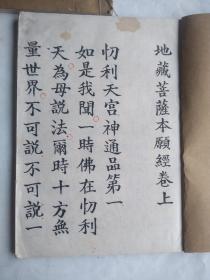 地藏菩薩本願經卷上
忉利天宮神通品第一
如是我聞一時佛在忉利
天為母說法爾時十方無
量世界不可說不可說一